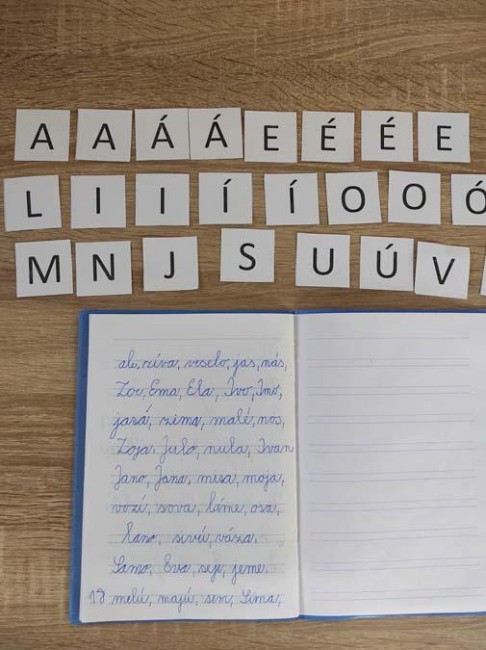 A A Á Á E É É E
L I I Í Í O O Ó
M N J S U Ú V
ale, zíva, veselo, jas, nás,
Zoe, Ema, Ela, Ivo, Imo,
jasá, zima, malé, nos,
Zoja, Julo, nula, Ivan
Jano, Jana, mesa, moja,
vozí, sova, láme, osa,
sivú, váza,
Samo, Eva, seje, jeme.
melú, majú, sem, Sima,